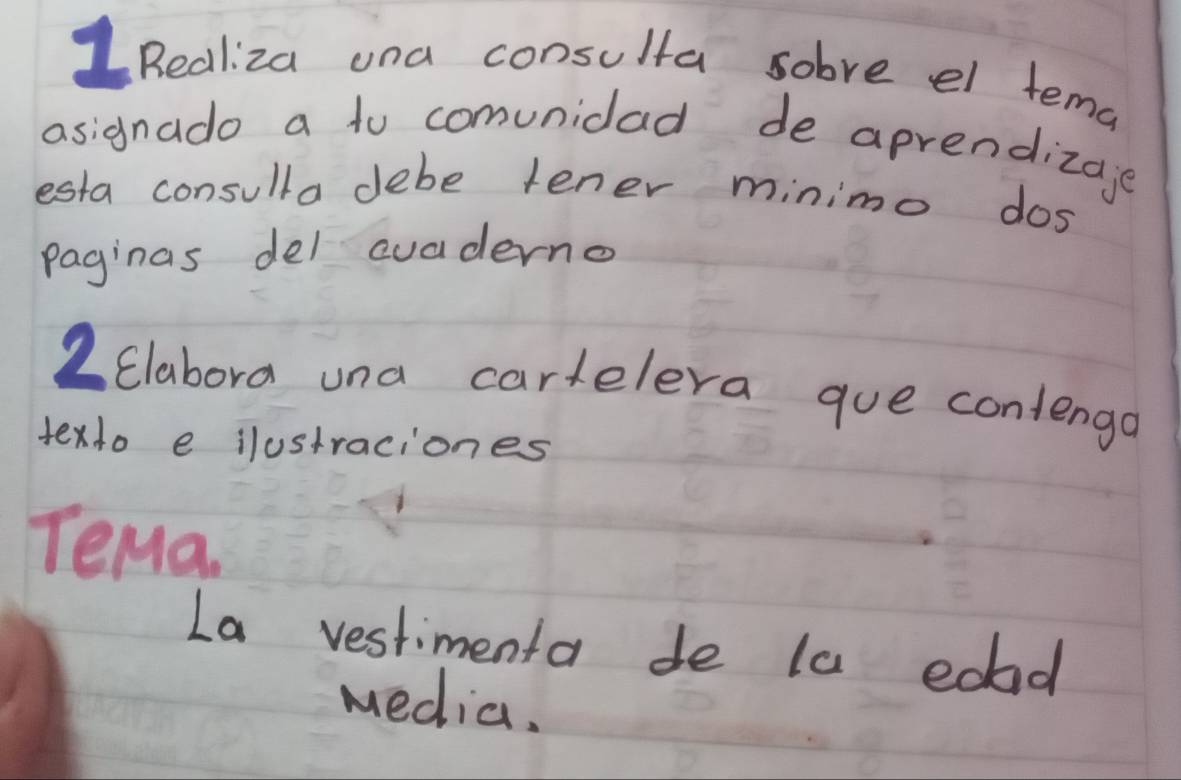 1 Realiza una consulta sobre el tema
asignado a tu comunidad de aprendizaje
esta consulta debe tener minimo dos
paginas del cuaderno
2 Elabora una cartelera que contenga
texto e ilustraciones
Tema.
La vestimenta de la edad
Media.